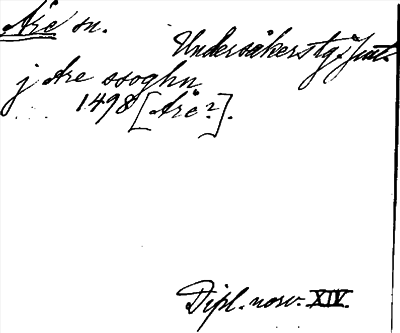 Åre sn.
Undersåkers tg. i Jmtl.
j Are ssoghn
1498 [Åre?].
Dipl. norv. XIV.